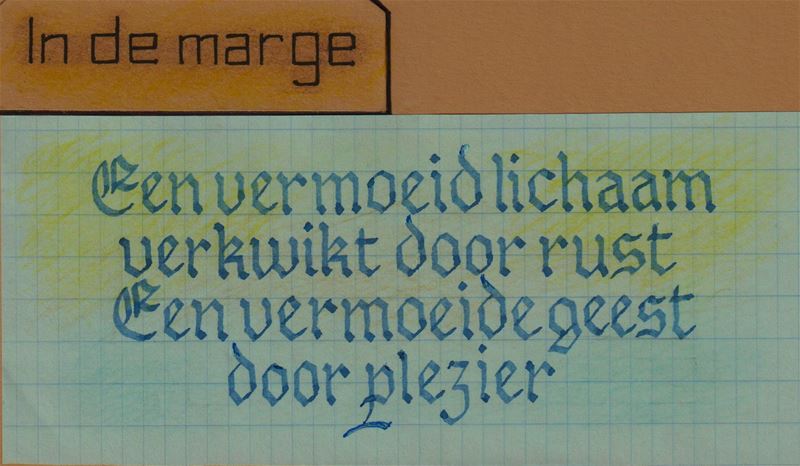 In de marge
Een vermoeid lichaam
verkwikt door rust
Een vermoeide geest
door plezier